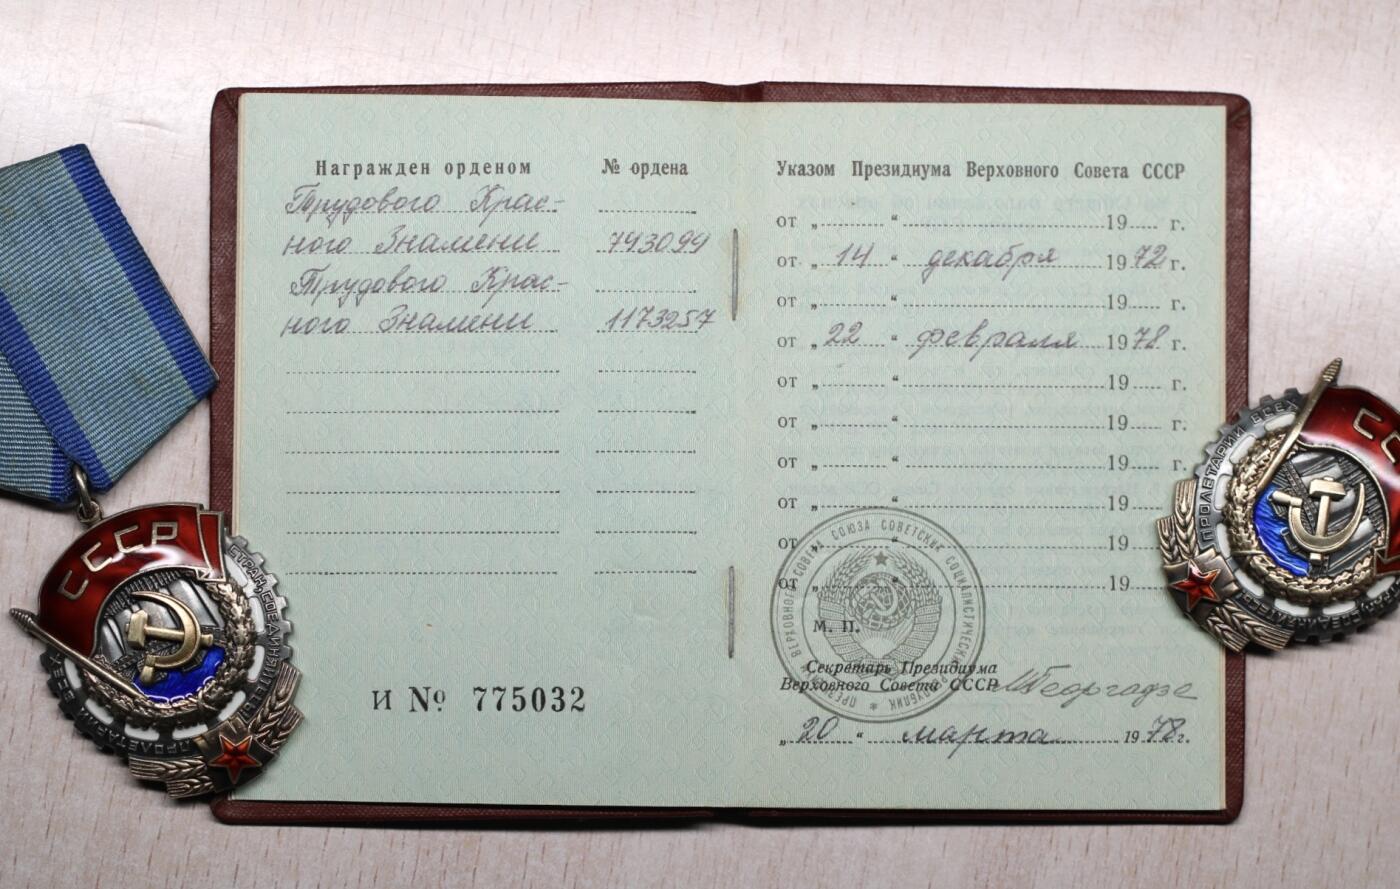 Награжден орденом
№ ордена
Трудового Крас-
ного Знамени 743099
Трудового Крас-
ного Знамени 1173257
И № 775032
Указом Президиума Верховного Совета СССР
от „ “ 19 г.
от „ 14 “ декабря 1972 г.
от „ “ 19 г.
от „ 22 “ февраля 1978 г.
от „ “ 19 г.
от „ “ 19 г.
от „ “ 19 г.
от „ “ 19
от „ “ 19
от „ “ 19
М. П.
Секретарь Президиума
Верховного Совета СССР М Георгадзе
„ 20 “ марта 1978 г.
СССР
ПРОЛЕТАРИИ ВСЕХ
СТРАН, СОЕДИНЯЙТЕСЬ!
ПРОЛЕТАРИИ ВСЕХ